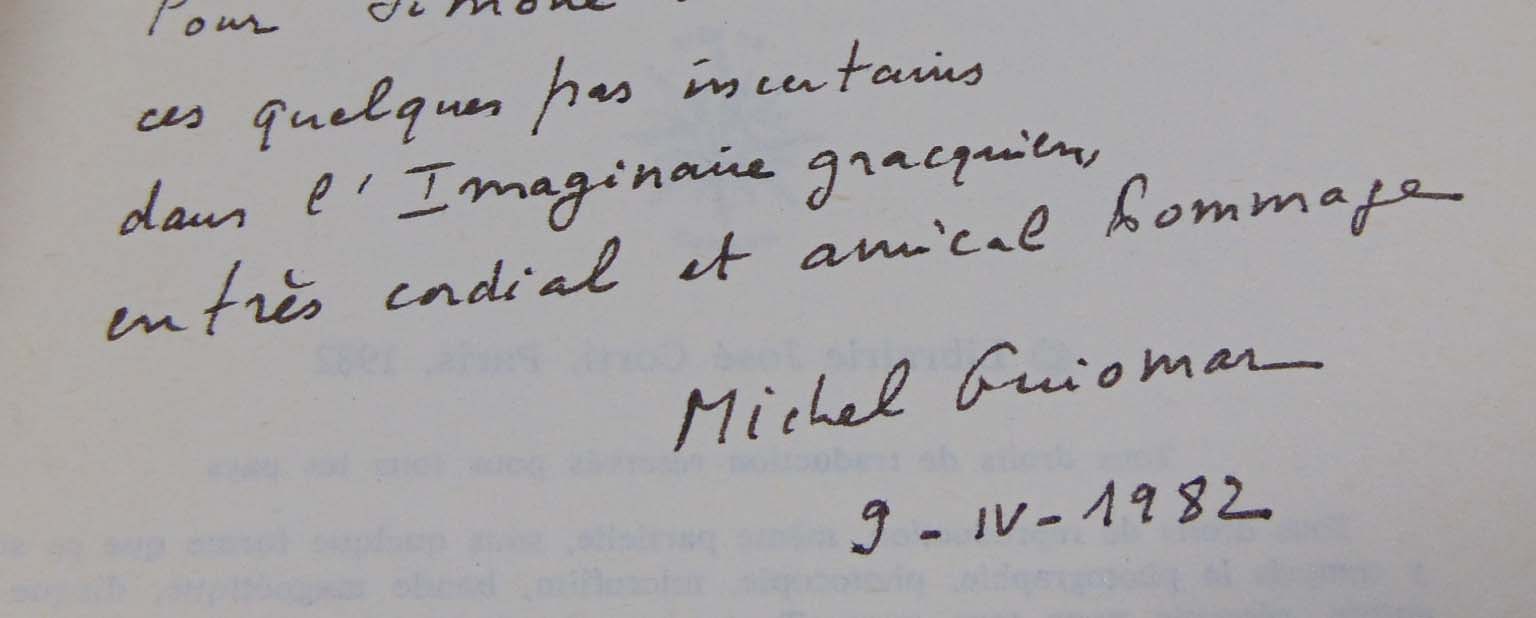 Pour Simone
ces quelques pas incertains
dans l'Imaginaire gracquien,
en très cordial et amical hommage
Michel Guiomar
9-IV-1982
© Librairie José Corti, Paris, 1982
Tous droits de traduction réservés pour tous les pays
Tous droits de reproduction, même partielle, sous quelque forme que ce
y compris la photographie, photocopie, microfilm, bande magnétique, disque